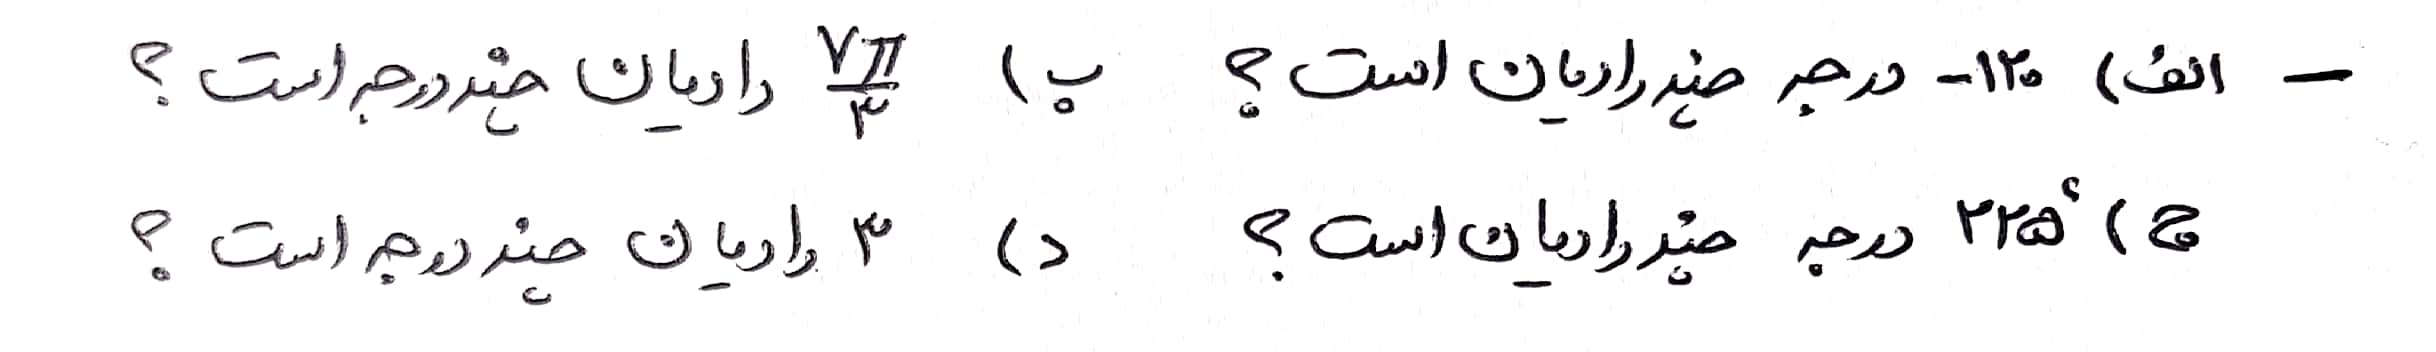 - الف) ۱۲۰- درجه چند رادیان است؟ ب) ۷π/۳ رادیان چند درجه است؟
ج) ۲۲۵° درجه چند رادیان است؟ د) ۳ رادیان چند درجه است؟